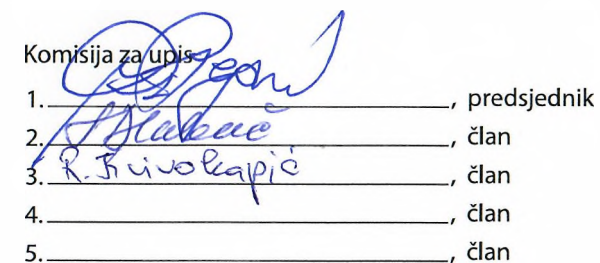 Komisija za upis
1. , predsjednik
2. , član
3. R. Krivokapić , član
4. , član
5. , član